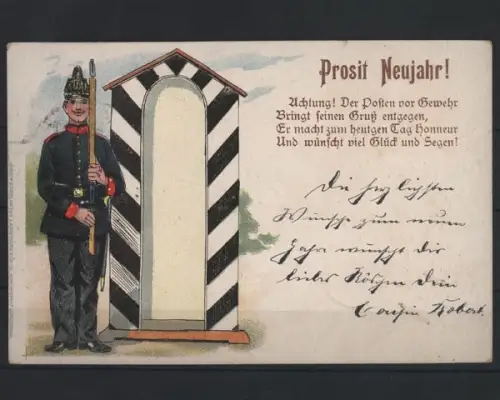 Prosit Neujahr!
Achtung! Der Posten vor Gewehr
Bringt seinen Gruß entgegen,
Er macht zum heutgen Tag Honneur
Und wünscht viel Glück und Segen!
Die herzlichsten
Wünsche zum neuen
Jahre wünscht dir
liebes Röschen Dein
Cousin Robert